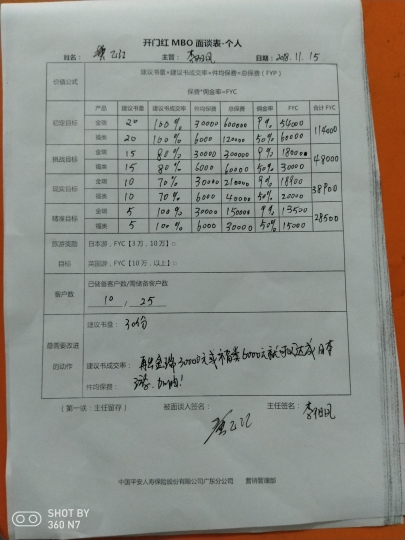 开门红 MBO 面谈表-个人
姓名： 主管： 日期：2018.11.15
价值公式 建议书量*建议书成交率*件均保费=总保费（FYP）
保费*佣金率=FYC
产品 建议书量 建议书成交率 件均保费 总保费 佣金率 FYC 合计FYC
初定目标 金瑞 20 100% 30000 600000 9% 54000 114000
福类 20 100% 6000 120000 50% 60000
挑战目标 金瑞 15 80% 30000 300000 9% 18000 48000
福类 15 80% 6000 60000 50% 30000
现实目标 金瑞 10 70% 30000 210000 9% 18900 38900
福类 10 70% 6000 40000 50% 20000
精准目标 金瑞 5 100% 30000 150000 9% 13500 28500
福类 5 100% 6000 30000 50% 15000
旅游奖励 日本游，FYC【3万，10万】○
目标 英国游，FYC【10万，以上】○
客户数 已储备客户数/需储备客户数
10 , 25
最需要改进的动作 建议书量：30份
建议书成交率：再出金瑞30000元或福类6000元就可以达成日本
件均保费： 游.加油!
（第一次：主任留存） 被面谈人签名： 主任签名：
中国平安人寿保险股份有限公司广东分公司 营销管理部
SHOT BY
360 N7